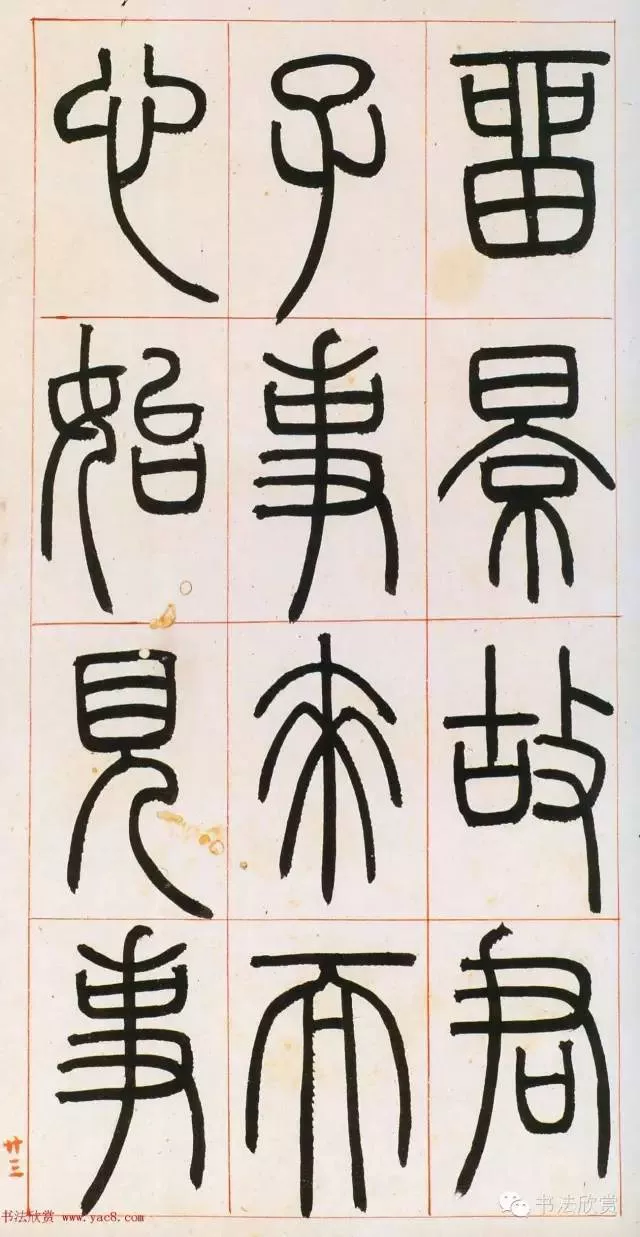 畱景故君
子事來而
心始見事
廿三
书法欣赏 www.yac8.com
书法欣赏